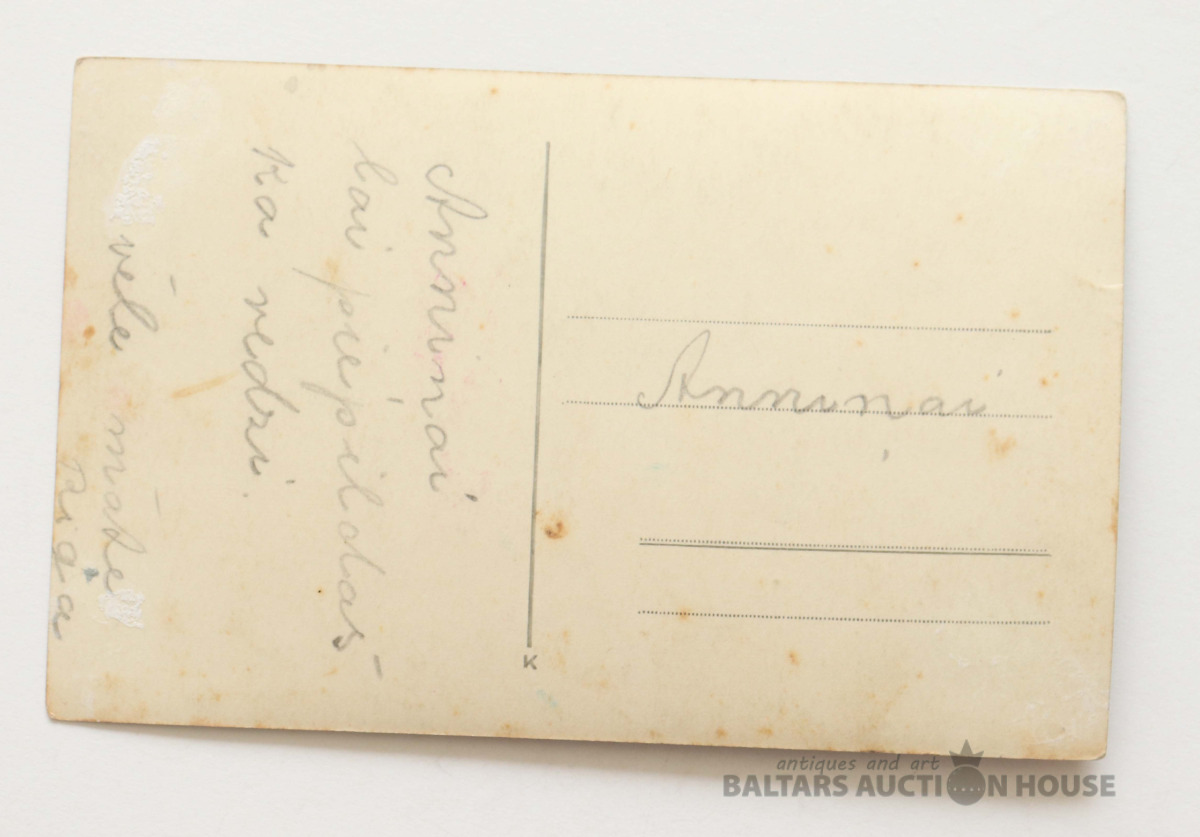 Anninai
lai piepildas
Ka redzi.
vēle māte
Rīgā
Anninai
K
antiques and art
BALTARS AUCTION HOUSE